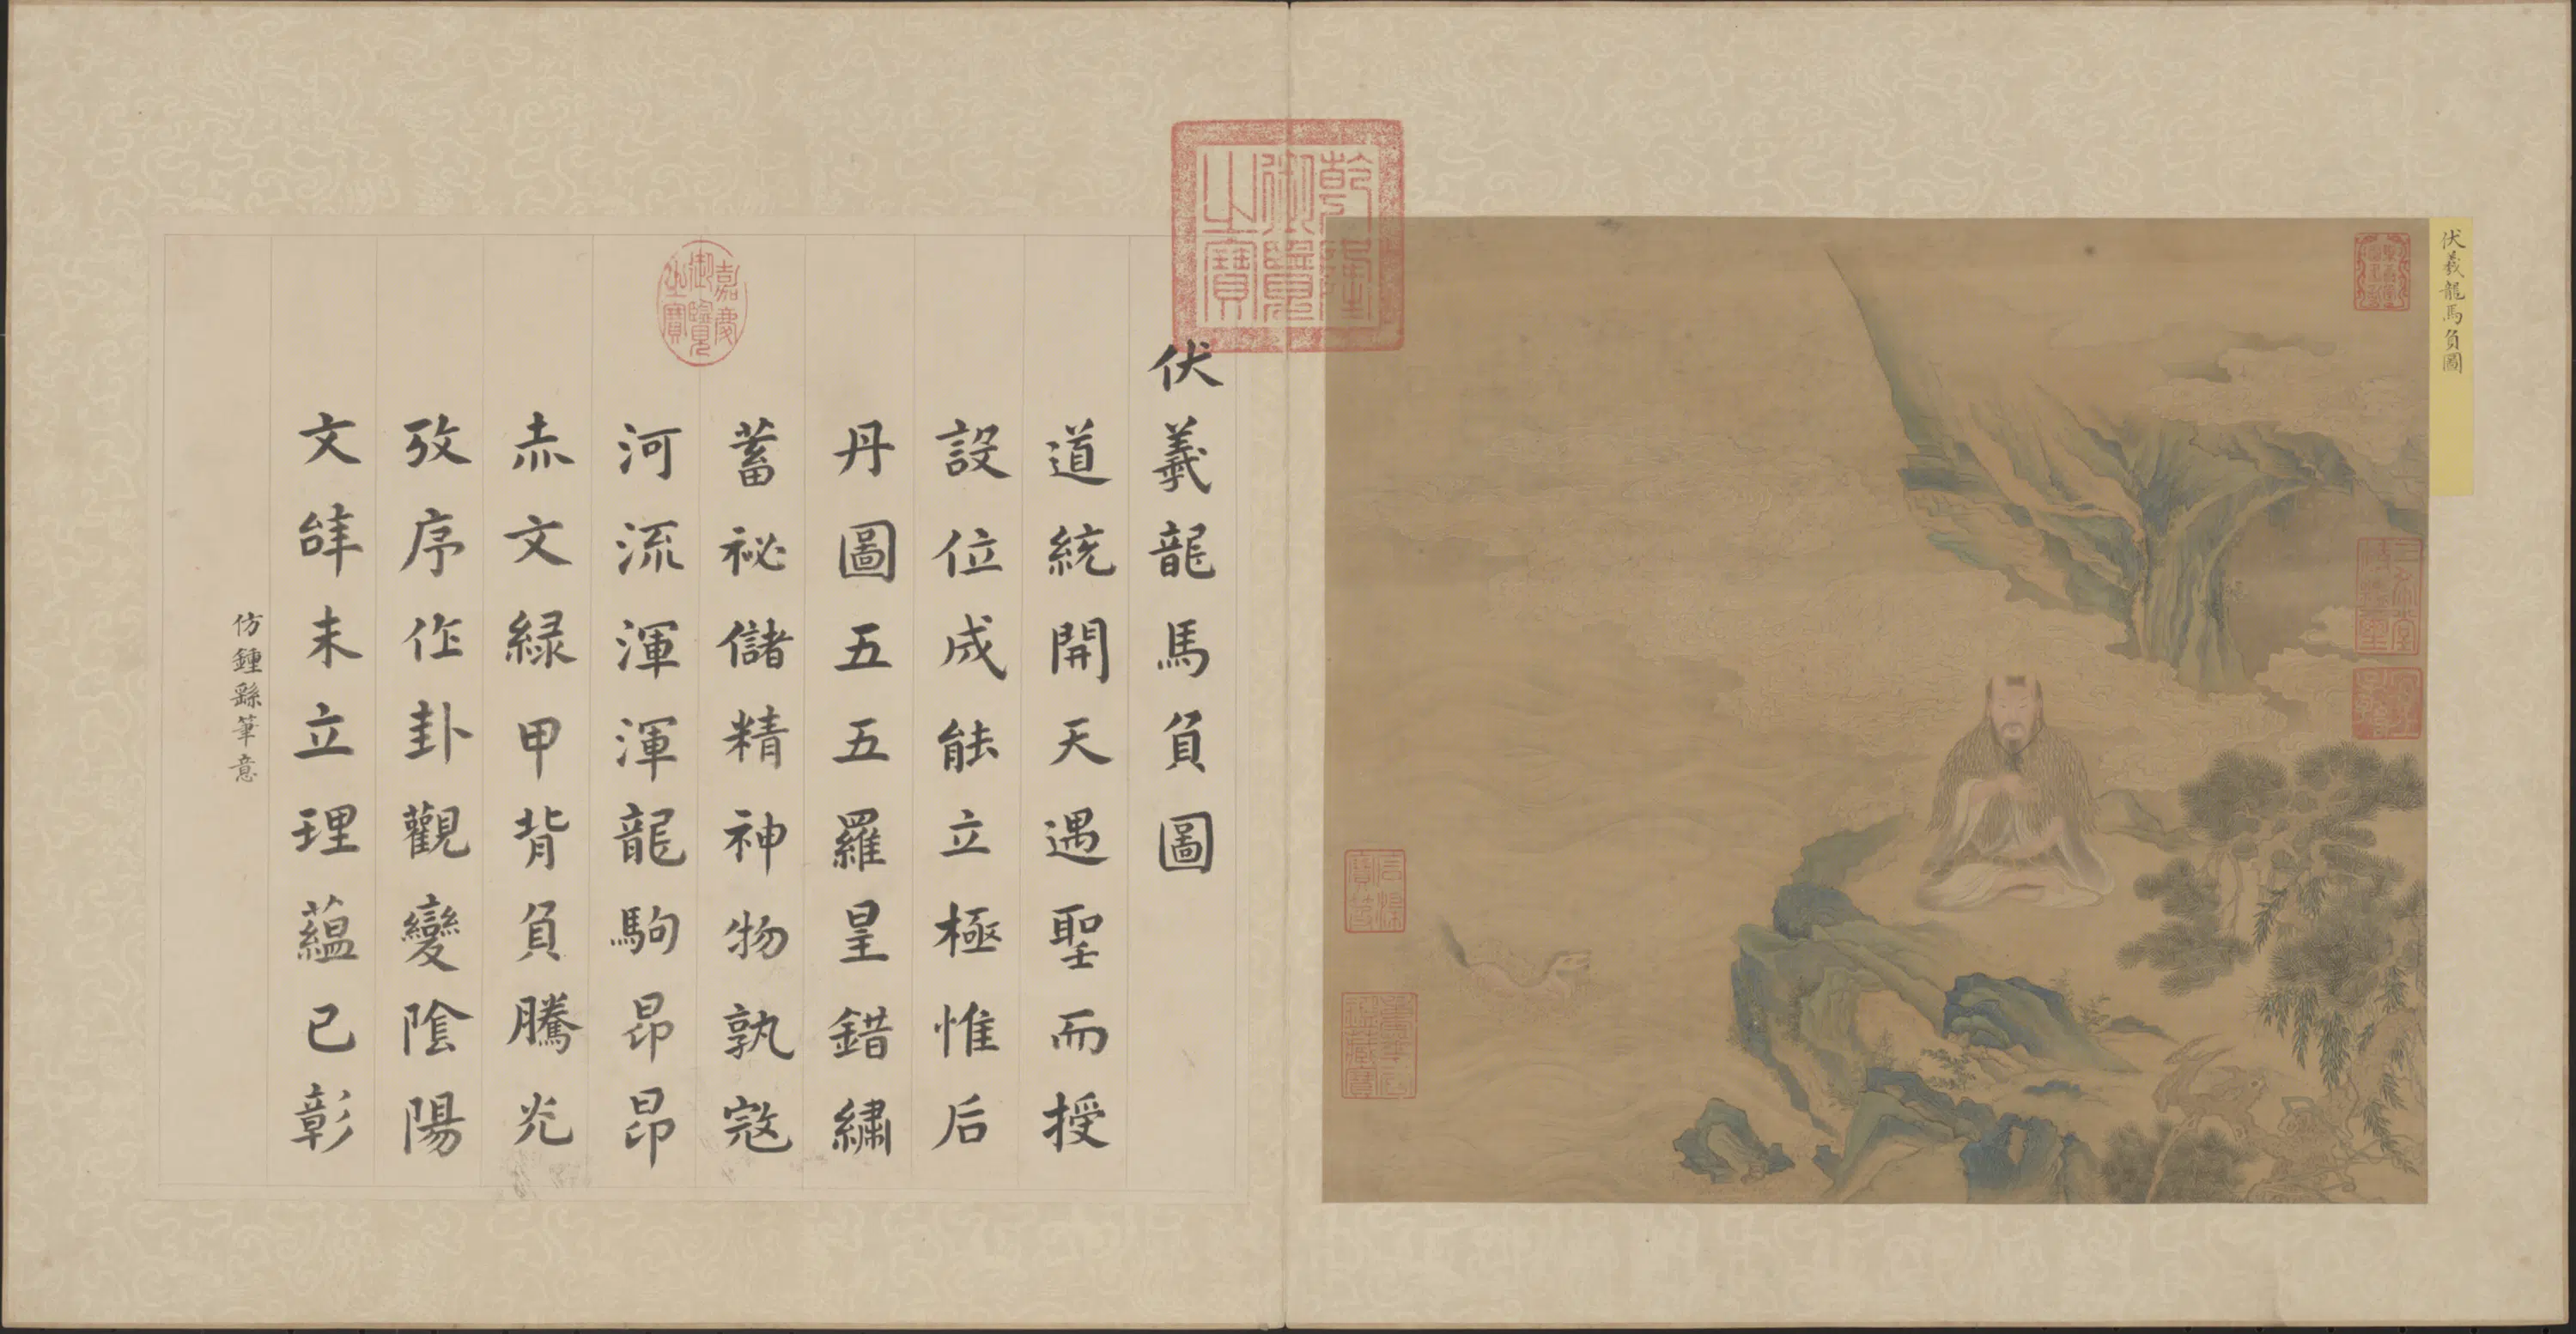 伏羲龍馬負圖
乾隆御覽之寶
伏羲龍馬負圖
道統開天遇聖而授
設位成能立極惟后
丹圖五五羅皇錯繡
蓄祕儲精神物孰寇
河流渾渾龍駒昂昂
赤文緑甲背負騰光
攷序作卦觀變陰陽
文辞未立理蘊已彰
仿鍾繇筆意
嘉慶御覽之寶